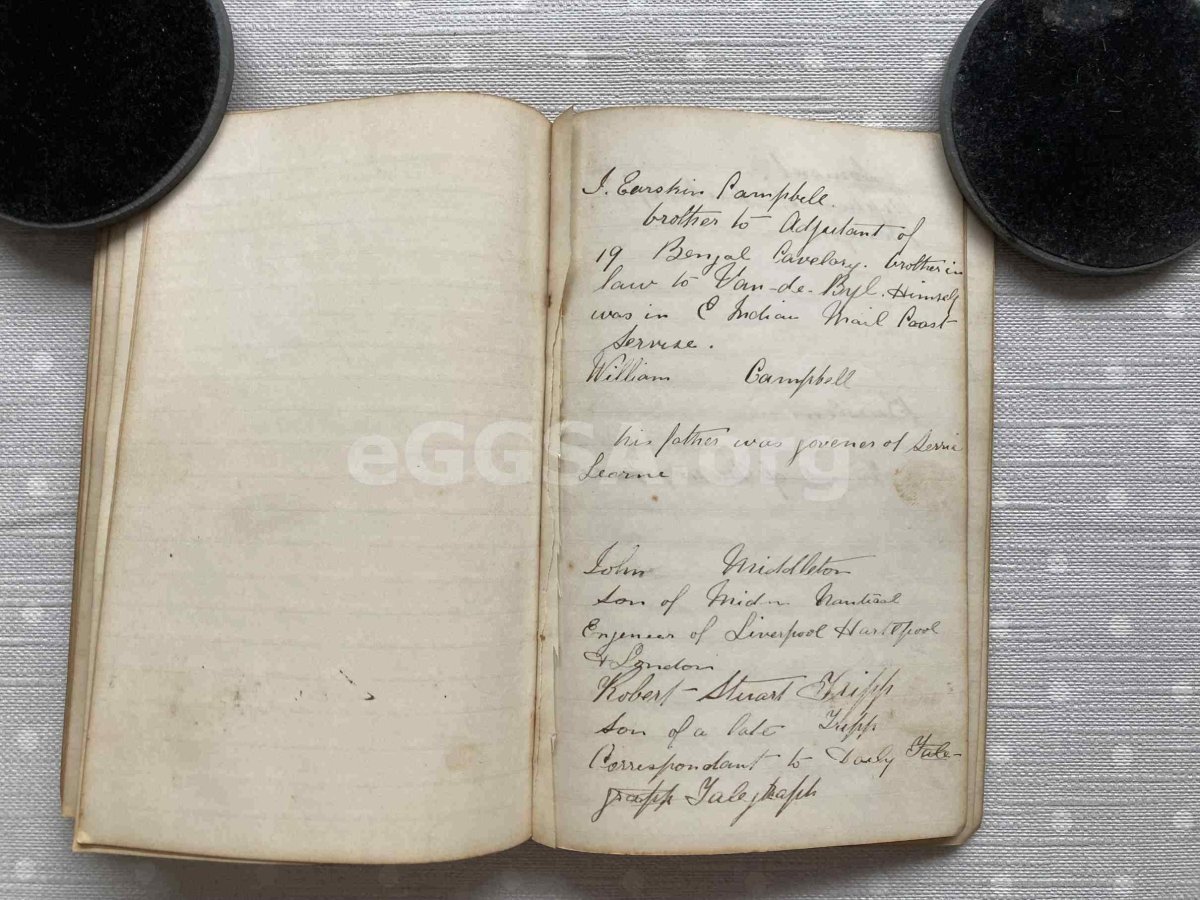 I. Earskin Campbell.
brother to Adjutant of
19 Bengal Cavelary. brother in
law to Van-de-Byl. Himself
was in E Indian Mail Coast
Servise.
William Campbell
his father was govener of Serrie
Learne
eGGSA.org
John Middleton
son of Midn Nautical
Engeneer of Liverpool Hartlpool
& London
Robert Stuart Tripp
son of a late Tripp
Correspondant to Daily Tale-
grapp Talegraph